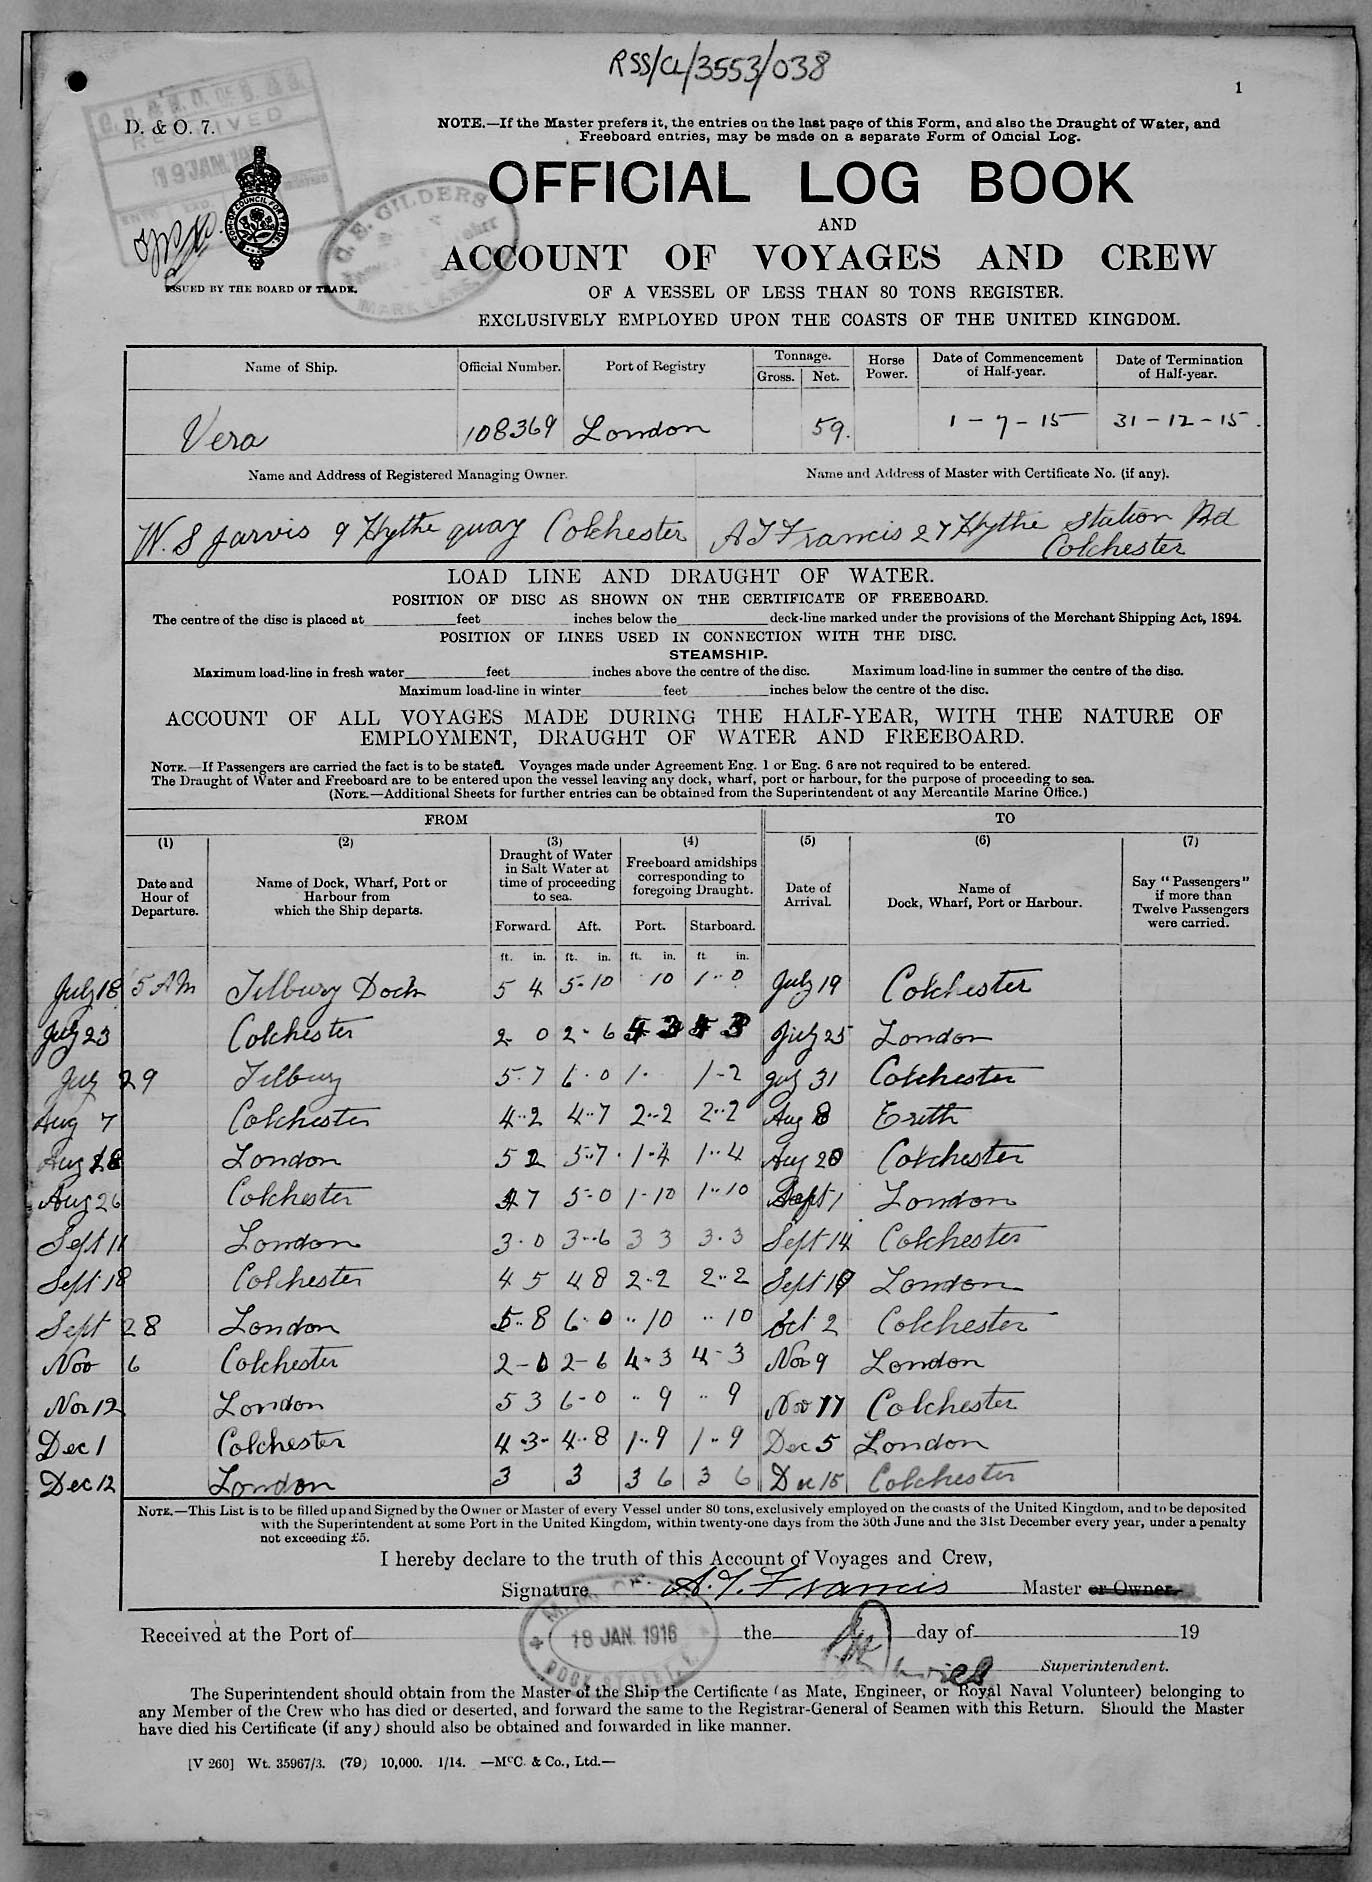 RSS/CL/3553/038
1
D. & O. 7.
RECEIVED
19 JAN. 19
NOTE.—If the Master prefers it, the entries on the last page of this Form, and also the Draught of Water, and
Freeboard entries, may be made on a separate Form of Official Log.
OFFICIAL LOG BOOK
AND
ACCOUNT OF VOYAGES AND CREW
OF A VESSEL OF LESS THAN 80 TONS REGISTER.
EXCLUSIVELY EMPLOYED UPON THE COASTS OF THE UNITED KINGDOM.
G. E. GILDERS
MARK LANE
ISSUED BY THE BOARD OF TRADE.
Name of Ship. Official Number. Port of Registry Tonnage. Gross. Net. Horse Power. Date of Commencement of Half-year. Date of Termination of Half-year.
Vera 108369 London 59. 1-7-15 31-12-15.
Name and Address of Registered Managing Owner. Name and Address of Master with Certificate No. (if any).
W. S Jarvis 9 Hythe quay Colchester A T Francis 27 Hythe Station Rd
Colchester
LOAD LINE AND DRAUGHT OF WATER.
POSITION OF DISC AS SHOWN ON THE CERTIFICATE OF FREEBOARD.
The centre of the disc is placed at feet inches below the deck-line marked under the provisions of the Merchant Shipping Act, 1894.
POSITION OF LINES USED IN CONNECTION WITH THE DISC.
STEAMSHIP.
Maximum load-line in fresh water feet inches above the centre of the disc. Maximum load-line in summer the centre of the disc.
Maximum load-line in winter feet inches below the centre of the disc.
ACCOUNT OF ALL VOYAGES MADE DURING THE HALF-YEAR, WITH THE NATURE OF
EMPLOYMENT, DRAUGHT OF WATER AND FREEBOARD.
NOTE.—If Passengers are carried the fact is to be stated. Voyages made under Agreement Eng. 1 or Eng. 6 are not required to be entered.
The Draught of Water and Freeboard are to be entered upon the vessel leaving any dock, wharf, port or harbour, for the purpose of proceeding to sea.
(NOTE.—Additional Sheets for further entries can be obtained from the Superintendent of any Mercantile Marine Office.)
FROM TO
(1) (2) (3) (4) (5) (6) (7)
Date and Hour of Departure. Name of Dock, Wharf, Port or Harbour from which the Ship departs. Draught of Water in Salt Water at time of proceeding to sea. Freeboard amidships corresponding to foregoing Draught. Date of Arrival. Name of Dock, Wharf, Port or Harbour. Say "Passengers" if more than Twelve Passengers were carried.
Forward. Aft. Port. Starboard.
ft. in. ft. in. ft. in. ft in.
July 18 5 AM Tilbury Dock 5 4 5-10 10 1-0 July 19 Colchester
July 23 Colchester 2 0 2-6 4 3 4 3 July 25 London
July 29 Tilbury 5.7 6.0 1. 1-2 July 31 Colchester
Aug 7 Colchester 4..2 4..7 2..2 2..2 Aug 8 Erith
Aug 18 London 5 2 5..7. 1-4 1..4 Aug 20 Colchester
Aug 26 Colchester 4 7 5-0 1-10 1..10 Sept 1 London
Sept 11 London 3.0 3-6 3 3 3.3 Sept 14 Colchester
Sept 18 Colchester 4 5 4 8 2-2 2..2 Sept 19 London
Sept 28 London 5..8 6.0 ..10 ..10 Oct 2 Colchester
Nov 6 Colchester 2-0 2-6 4.3 4-3 Nov 9 London
Nov 12 London 5 3 6-0 .. 9 .. 9 Nov 17 Colchester
Dec 1 Colchester 4-3- 4..8 1..9 1..9 Dec 5 London
Dec 12 London 3 3 3 6 3 6 Dec 15 Colchester
NOTE.—This List is to be filled up and Signed by the Owner or Master of every Vessel under 80 tons, exclusively employed on the coasts of the United Kingdom, and to be deposited
with the Superintendent at some Port in the United Kingdom, within twenty-one days from the 30th June and the 31st December every year, under a penalty
not exceeding £5.
I hereby declare to the truth of this Account of Voyages and Crew,
Signature A. T. Francis Master or Owner.
Received at the Port of the day of 19
18 JAN. 1916
DOCK STREET, E.
Superintendent.
The Superintendent should obtain from the Master of the Ship the Certificate (as Mate, Engineer, or Royal Naval Volunteer) belonging to
any Member of the Crew who has died or deserted, and forward the same to the Registrar-General of Seamen with this Return. Should the Master
have died his Certificate (if any) should also be obtained and forwarded in like manner.
[V 260] Wt. 35967/3. (79) 10,000. 1/14. —McC. & Co., Ltd.—